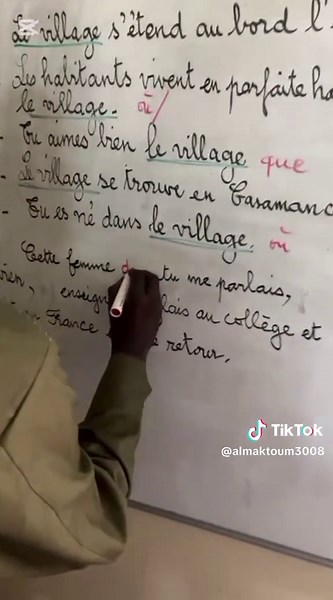 Le village s'étend au bord l'
Les habitants vivent en parfaite ha
le village. où
- Tu aimes bien le village que
- Le village se trouve en Casamanc
- Tu es né dans le village. où
Cette femme d tu me parlais,
ien, enseign lais au collège et
en France retour.
TikTok
@almaktoum3008